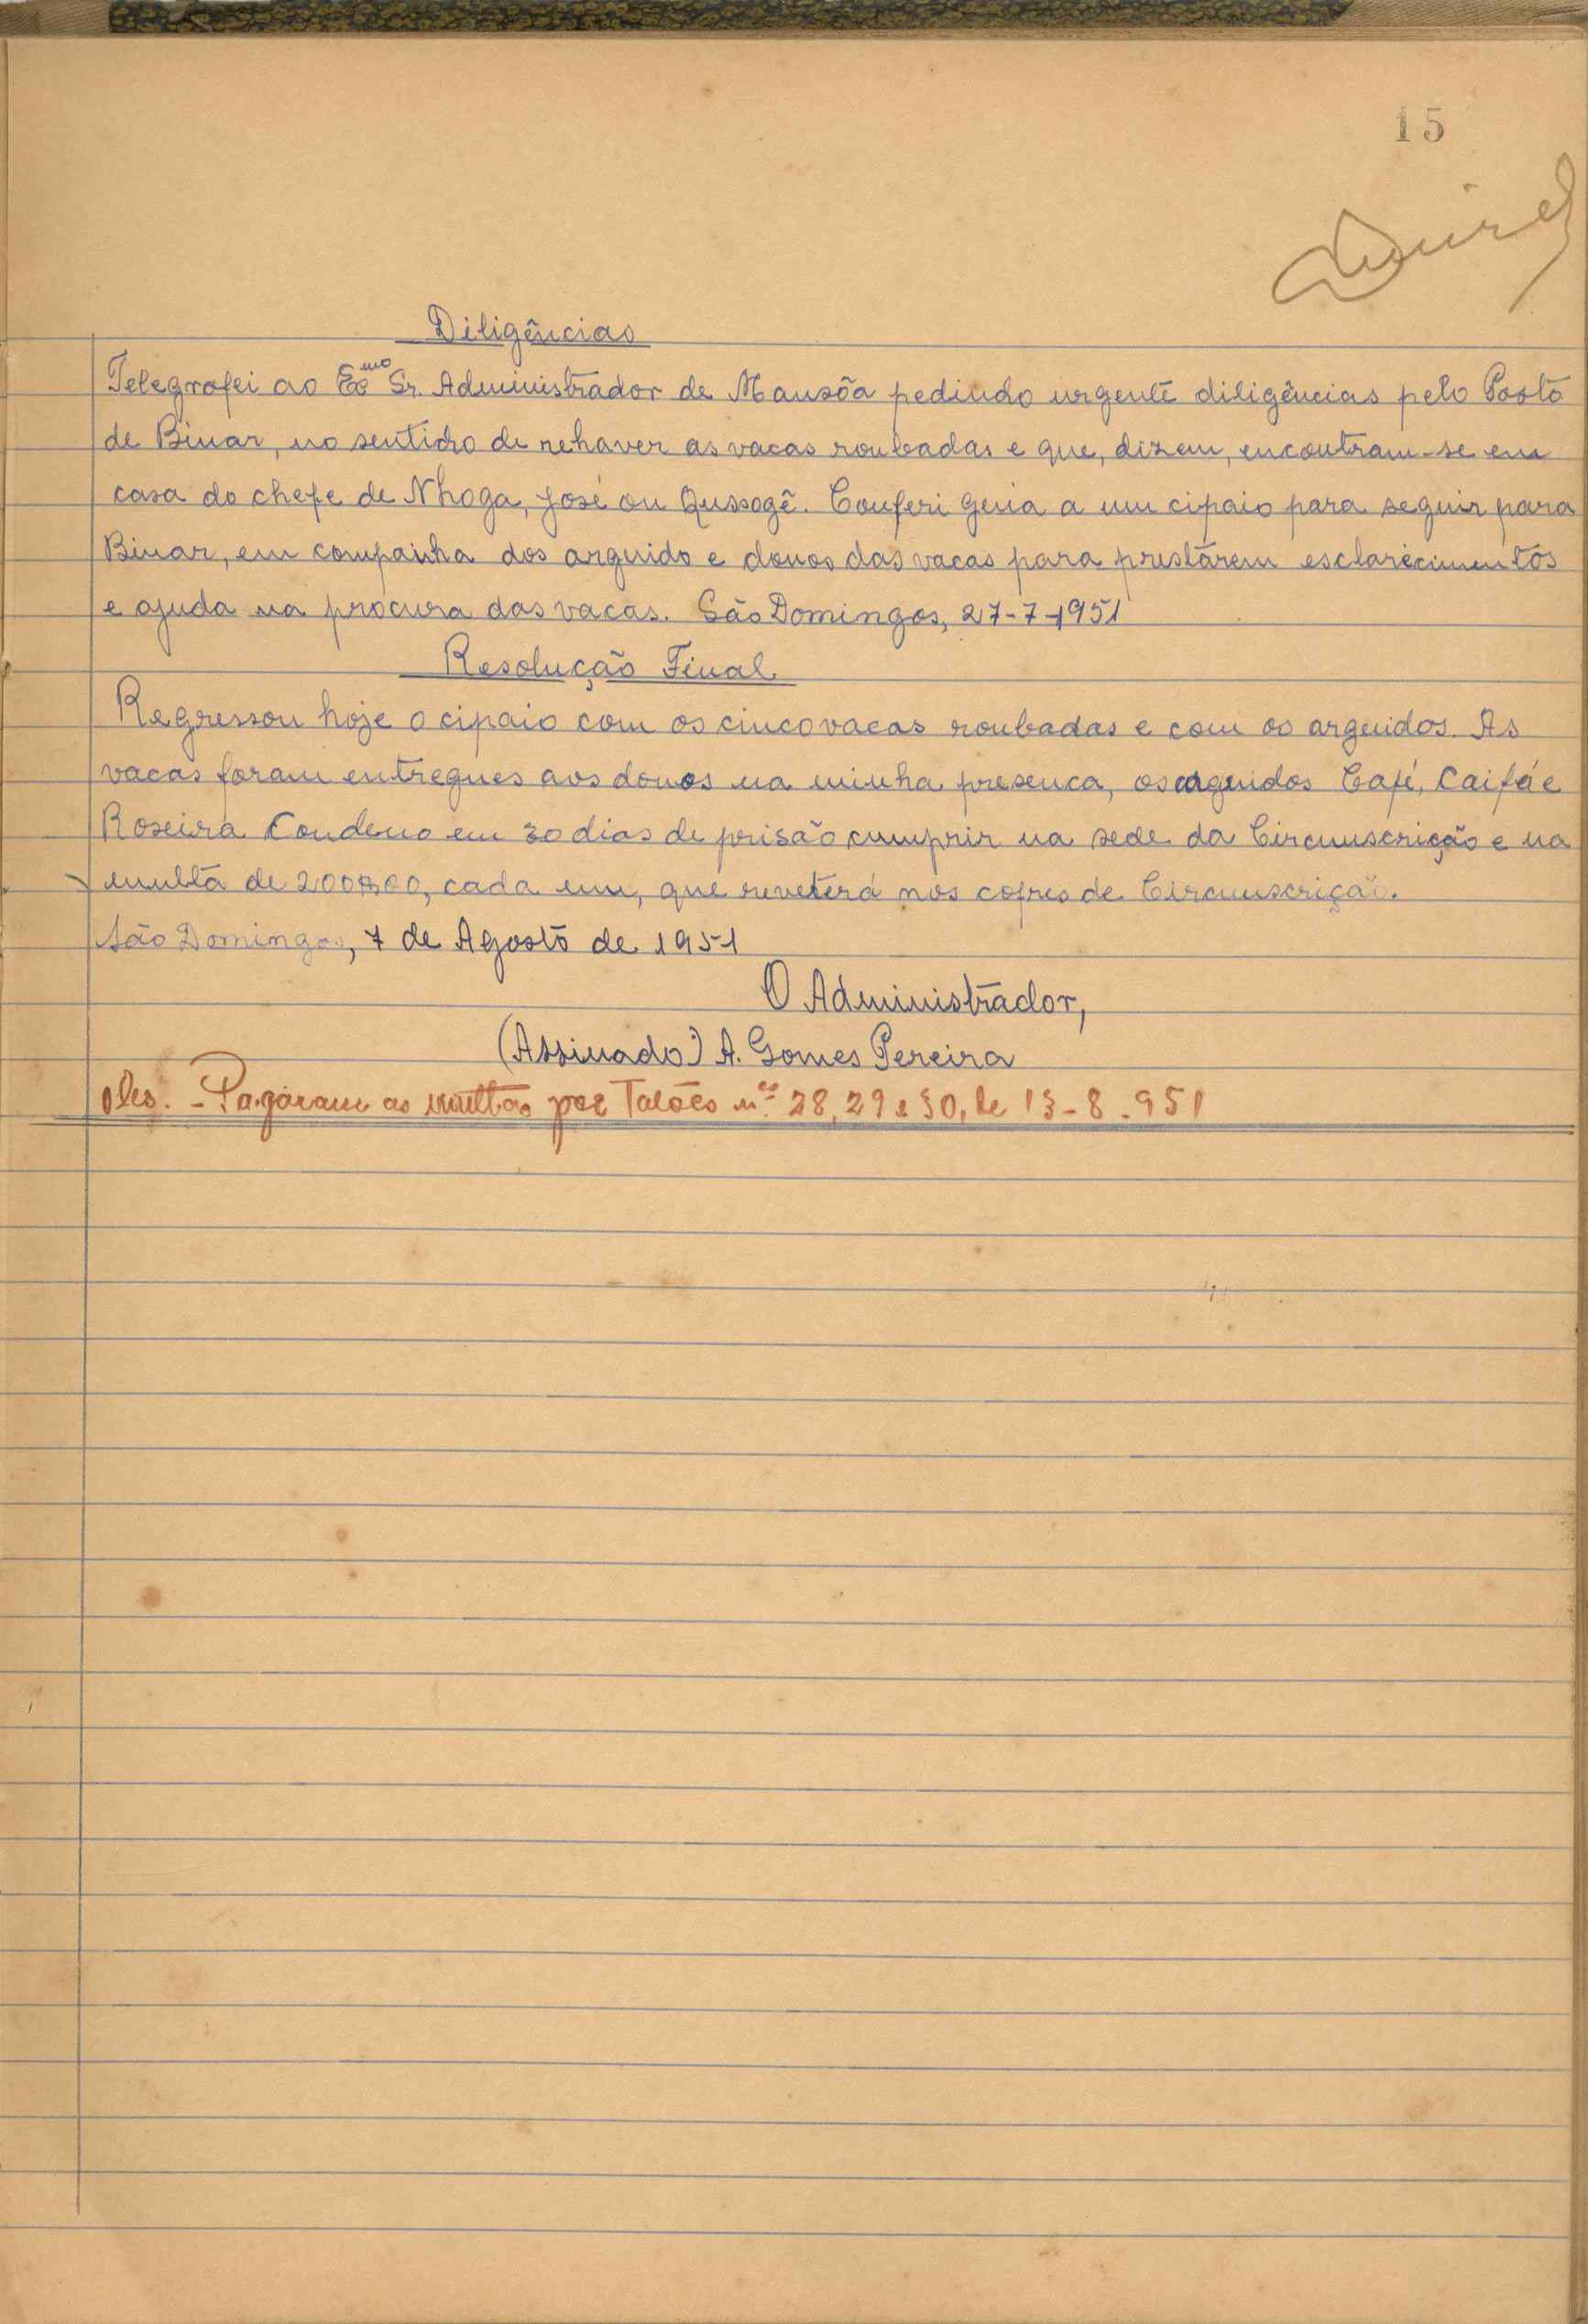 15
Diligências
Telegrafei ao Eo mo Sr. Administrador de Mansôa pedindo urgente diligências pelo Posto
de Binar, no sentido de rehaver as vacas roubadas e que, dizem, encontram-se em
casa do chefe de Nhoga, José ou Qussogê. Conferi geria a um cipaio para seguir para
Binar, em compainha dos arguido e donos das vacas para prestárem esclarécimentos
e ajuda na procura das vacas. São Domingos, 27-7-1951
Resolução Final
Regressou hoje o cipaio com os cinco vacas roubadas e com os arguidos. As
vacas foram entregues aos donos na minha presenca, os arguidos Café, Caifá e
Roseira Condeno em 30 dias de prisão cumprir na sede da Circunscrição e na
multa de 200$00, cada um, que reveterá nos cofres de Circunscrição.
São Domingos, 7 de Agosto de 1951
O Administrador,
(Assinado) A. Gomes Pereira
Obs. - Pagaram as multas por Talões nos 28, 29 e 30, de 13-8-951